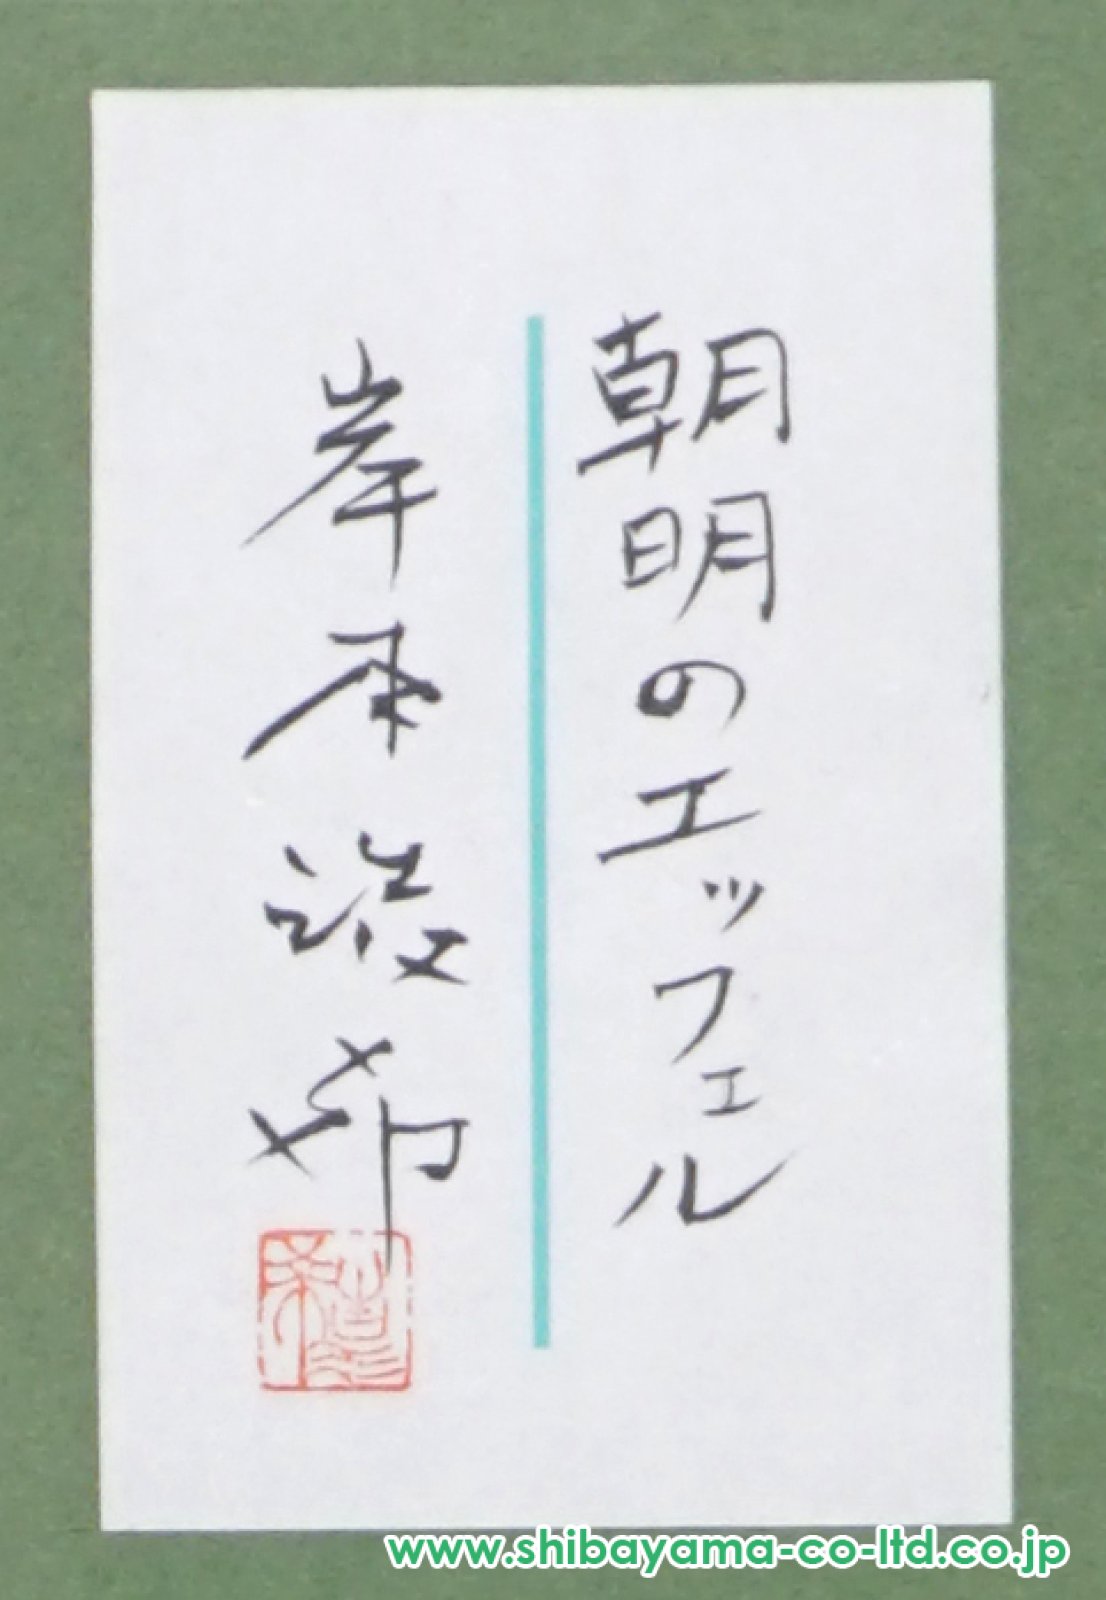 朝明のエッフェル
岸本浩希
www.shibayama-co-ltd.co.jp